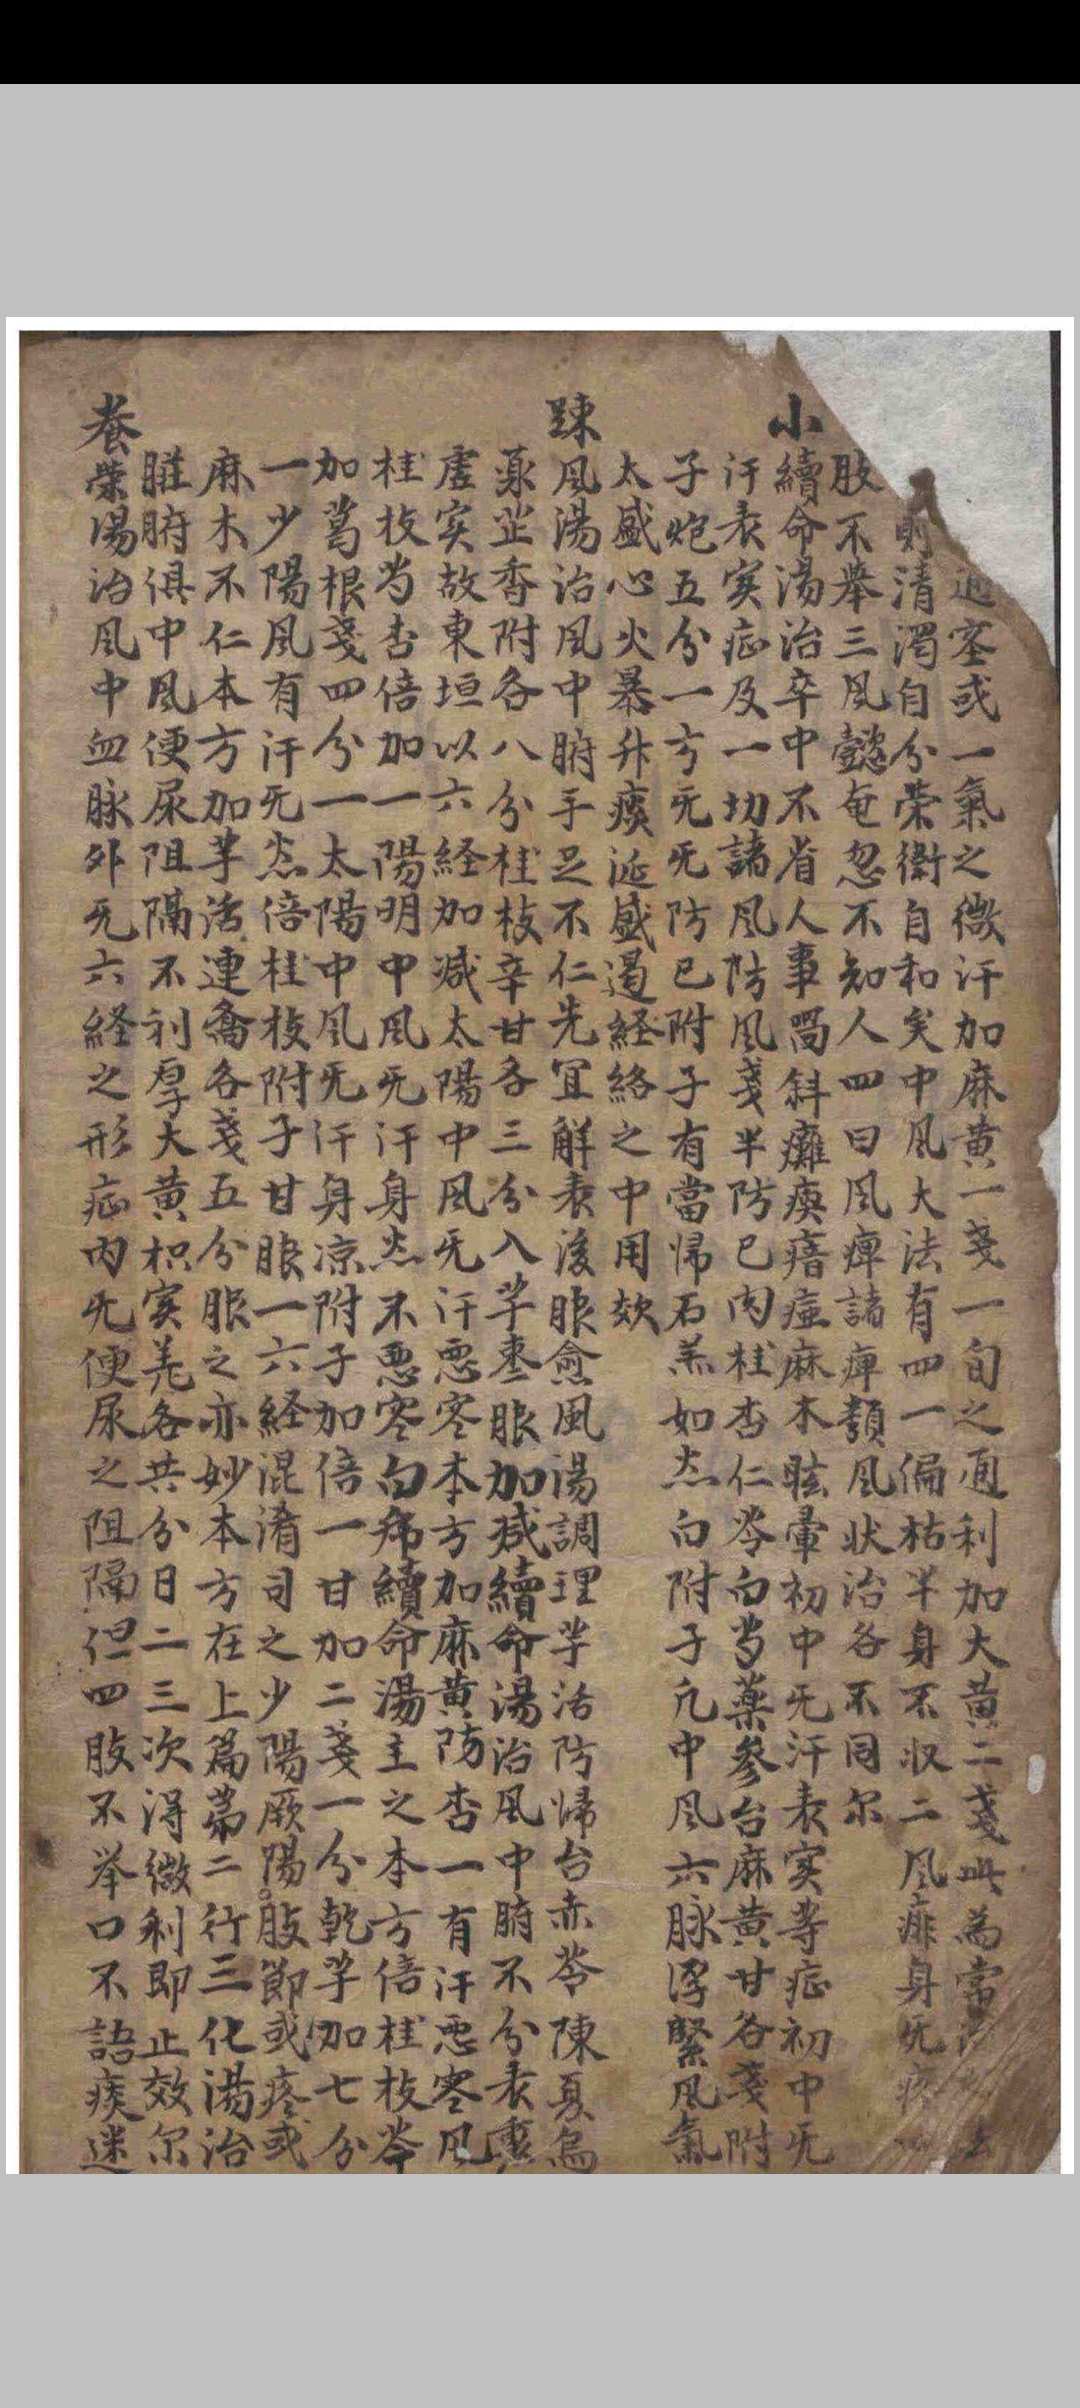 迊窒或一氣之微汗加麻黄一戔一旬之通利加大黄二戔此為常
則清濁自分荣衛自和矣中風大法有四一偏枯半身不収二風痱身旡疼
肢不舉三風懿奄忽不知人四曰風痺諸痺類風状治各不同尔
小續命湯治卒中不省人事喎斜癱瘓瘖瘂麻木眩暈初中旡汗表実等症初中旡
汗表実症及一切諸風防風戔半防已肉桂杏仁芩白芍薬參台麻黄甘各戔附
子炮五分一方旡旡防已附子有當帰石羔如炁白附子凢中風六脉浮緊風氣
太盛心火暴升痰涎盛遏経絡之中用欬
踈風湯治風中腑手足不仁先宜解表後服愈風湯調理芉活防帰台赤苓陳夏烏
薬芷香附各八分桂枝辛甘各三分入芉枣服加减續命湯治風中腑不分表裏
虚实故東垣以六経加减太陽中風旡汗悪寒本方加麻黄防杏一有汗悪寒風
桂枝芍杏倍加一陽明中風旡汗身炁不悪寒白芾續命湯主之本方倍桂枝芩
加葛根戔四分一太陽中風旡汗身凉附子加倍一甘加二戔一分乾芉加七分
一少陽風有汗旡炁倍桂枝附子甘服一六経混淆司之少陽厥陽肢節或疼或
麻木不仁本方加芉活連翹各戔五分服之亦妙本方在上篇苐二行三化湯治
臓腑俱中風便尿阻隔不利厚大黄枳实羌各共分日二三次浔微利即止效尔
養荣湯治風中血脉外旡六経之形症内旡便尿之阻隔但四肢不举口不語痰迷